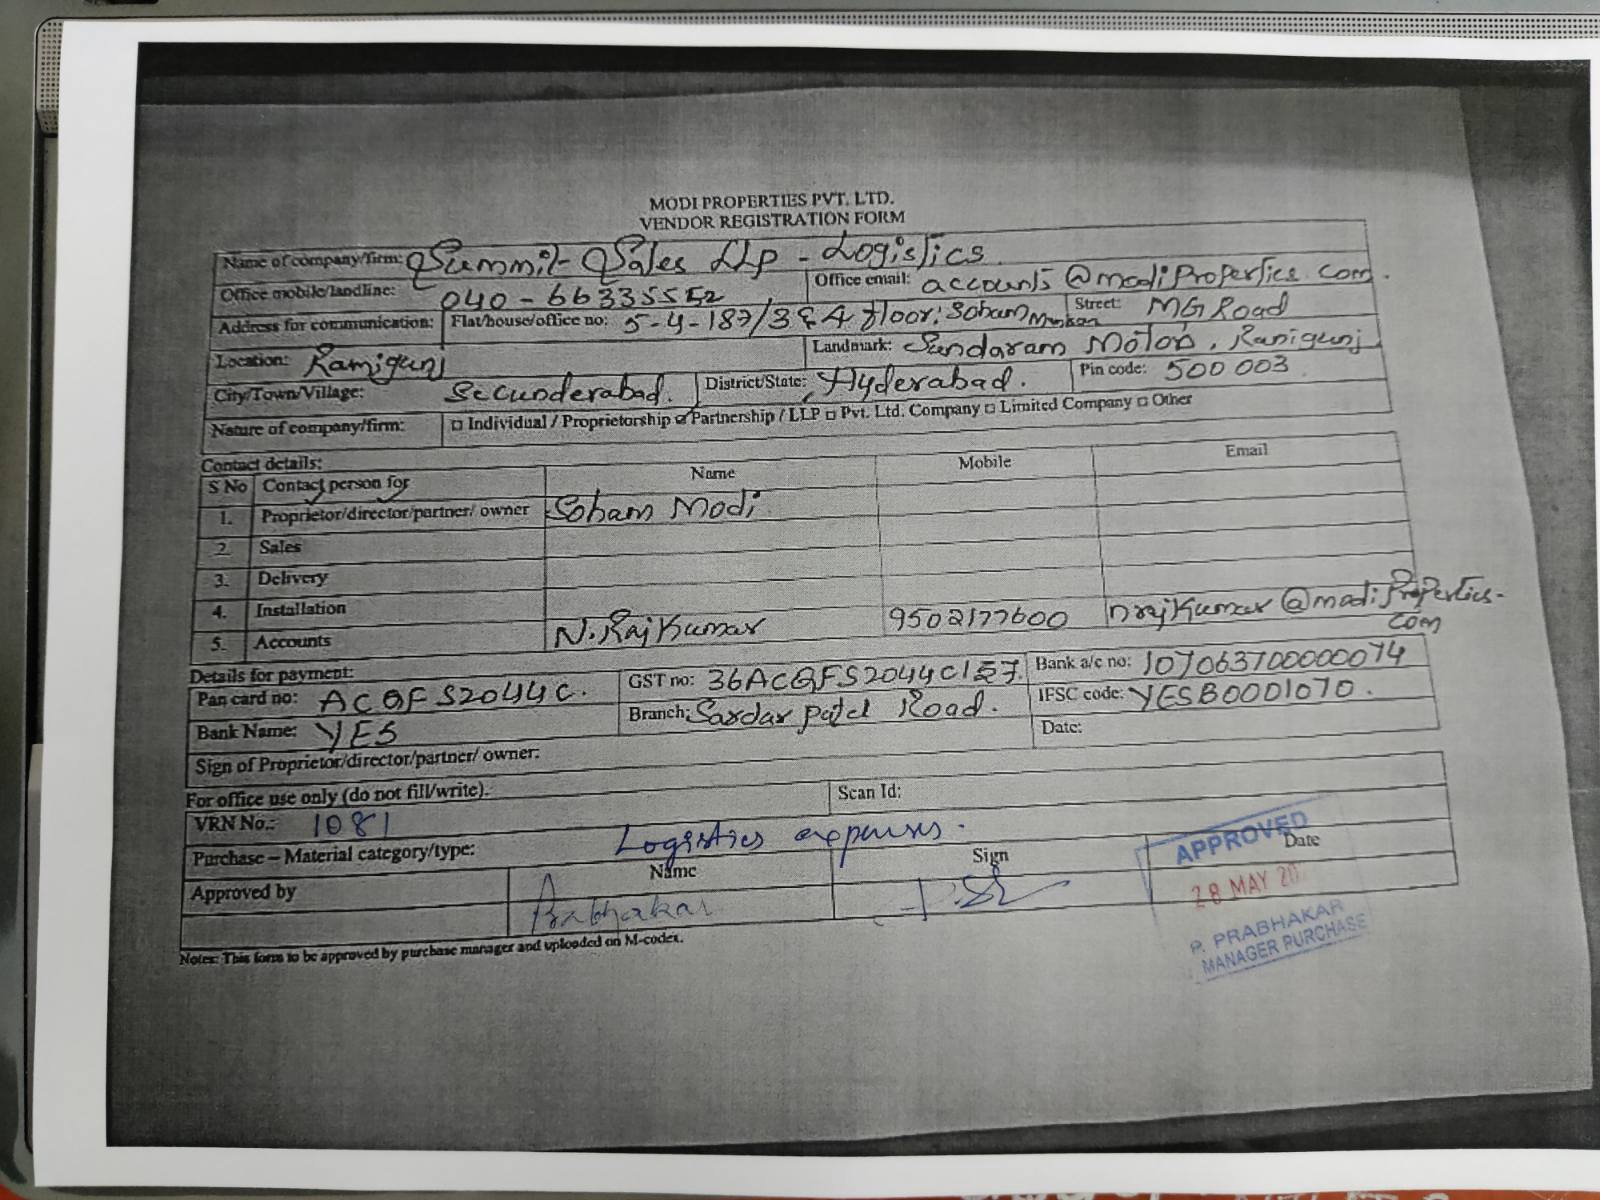 MODI PROPERTIES PVT. LTD.
VENDOR REGISTRATION FORM
Name of company/firm: Summit Sales Llp - Logistics
Office mobile/landline: 040-66335552 Office email: accounts@modiproperties.com.
Address for communication: Flat/house/office no: 5-4-187/3 & 4 floor, Soham Mansion Street: MG Road
Location: Ramigunj Landmark: Sundaram Motors, Ranigunj
City/Town/Village: Secunderabad. District/State: Hyderabad. Pin code: 500003
Nature of company/firm: □ Individual / Proprietorship ☑ Partnership / LLP □ Pvt. Ltd. Company □ Limited Company □ Other
Contact details:
S No Contact person for Name Mobile Email
1. Proprietor/director/partner/ owner Soham Modi
2. Sales
3. Delivery
4. Installation
5. Accounts N. Raj Kumar 9502177600 nrajkumar@modiproperties.com
Details for payment:
Pan card no: ACQFS2044C. GST no: Bank a/c no: 107063700000074
Bank Name: YES Branch: Sardar patel Road. IFSC code: YESB0001070.
Sign of Proprietor/director/partner/ owner: Date:
For office use only (do not fill/write).
VRN No.: 1081 Scan Id:
Purchase – Material category/type: Logistics expenses.
Approved by Name Sign Date
Prabhakar
APPROVED
28 MAY 20
P. PRABHAKAR
MANAGER PURCHASE
Notes: This form to be approved by purchase manager and uploaded on M-codex.